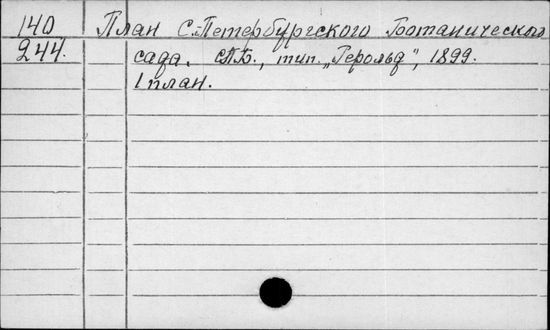 140 План С.-Петербургского Ботанического
244. сада. СПБ., тип. „Герольд", 1899.
1 план.